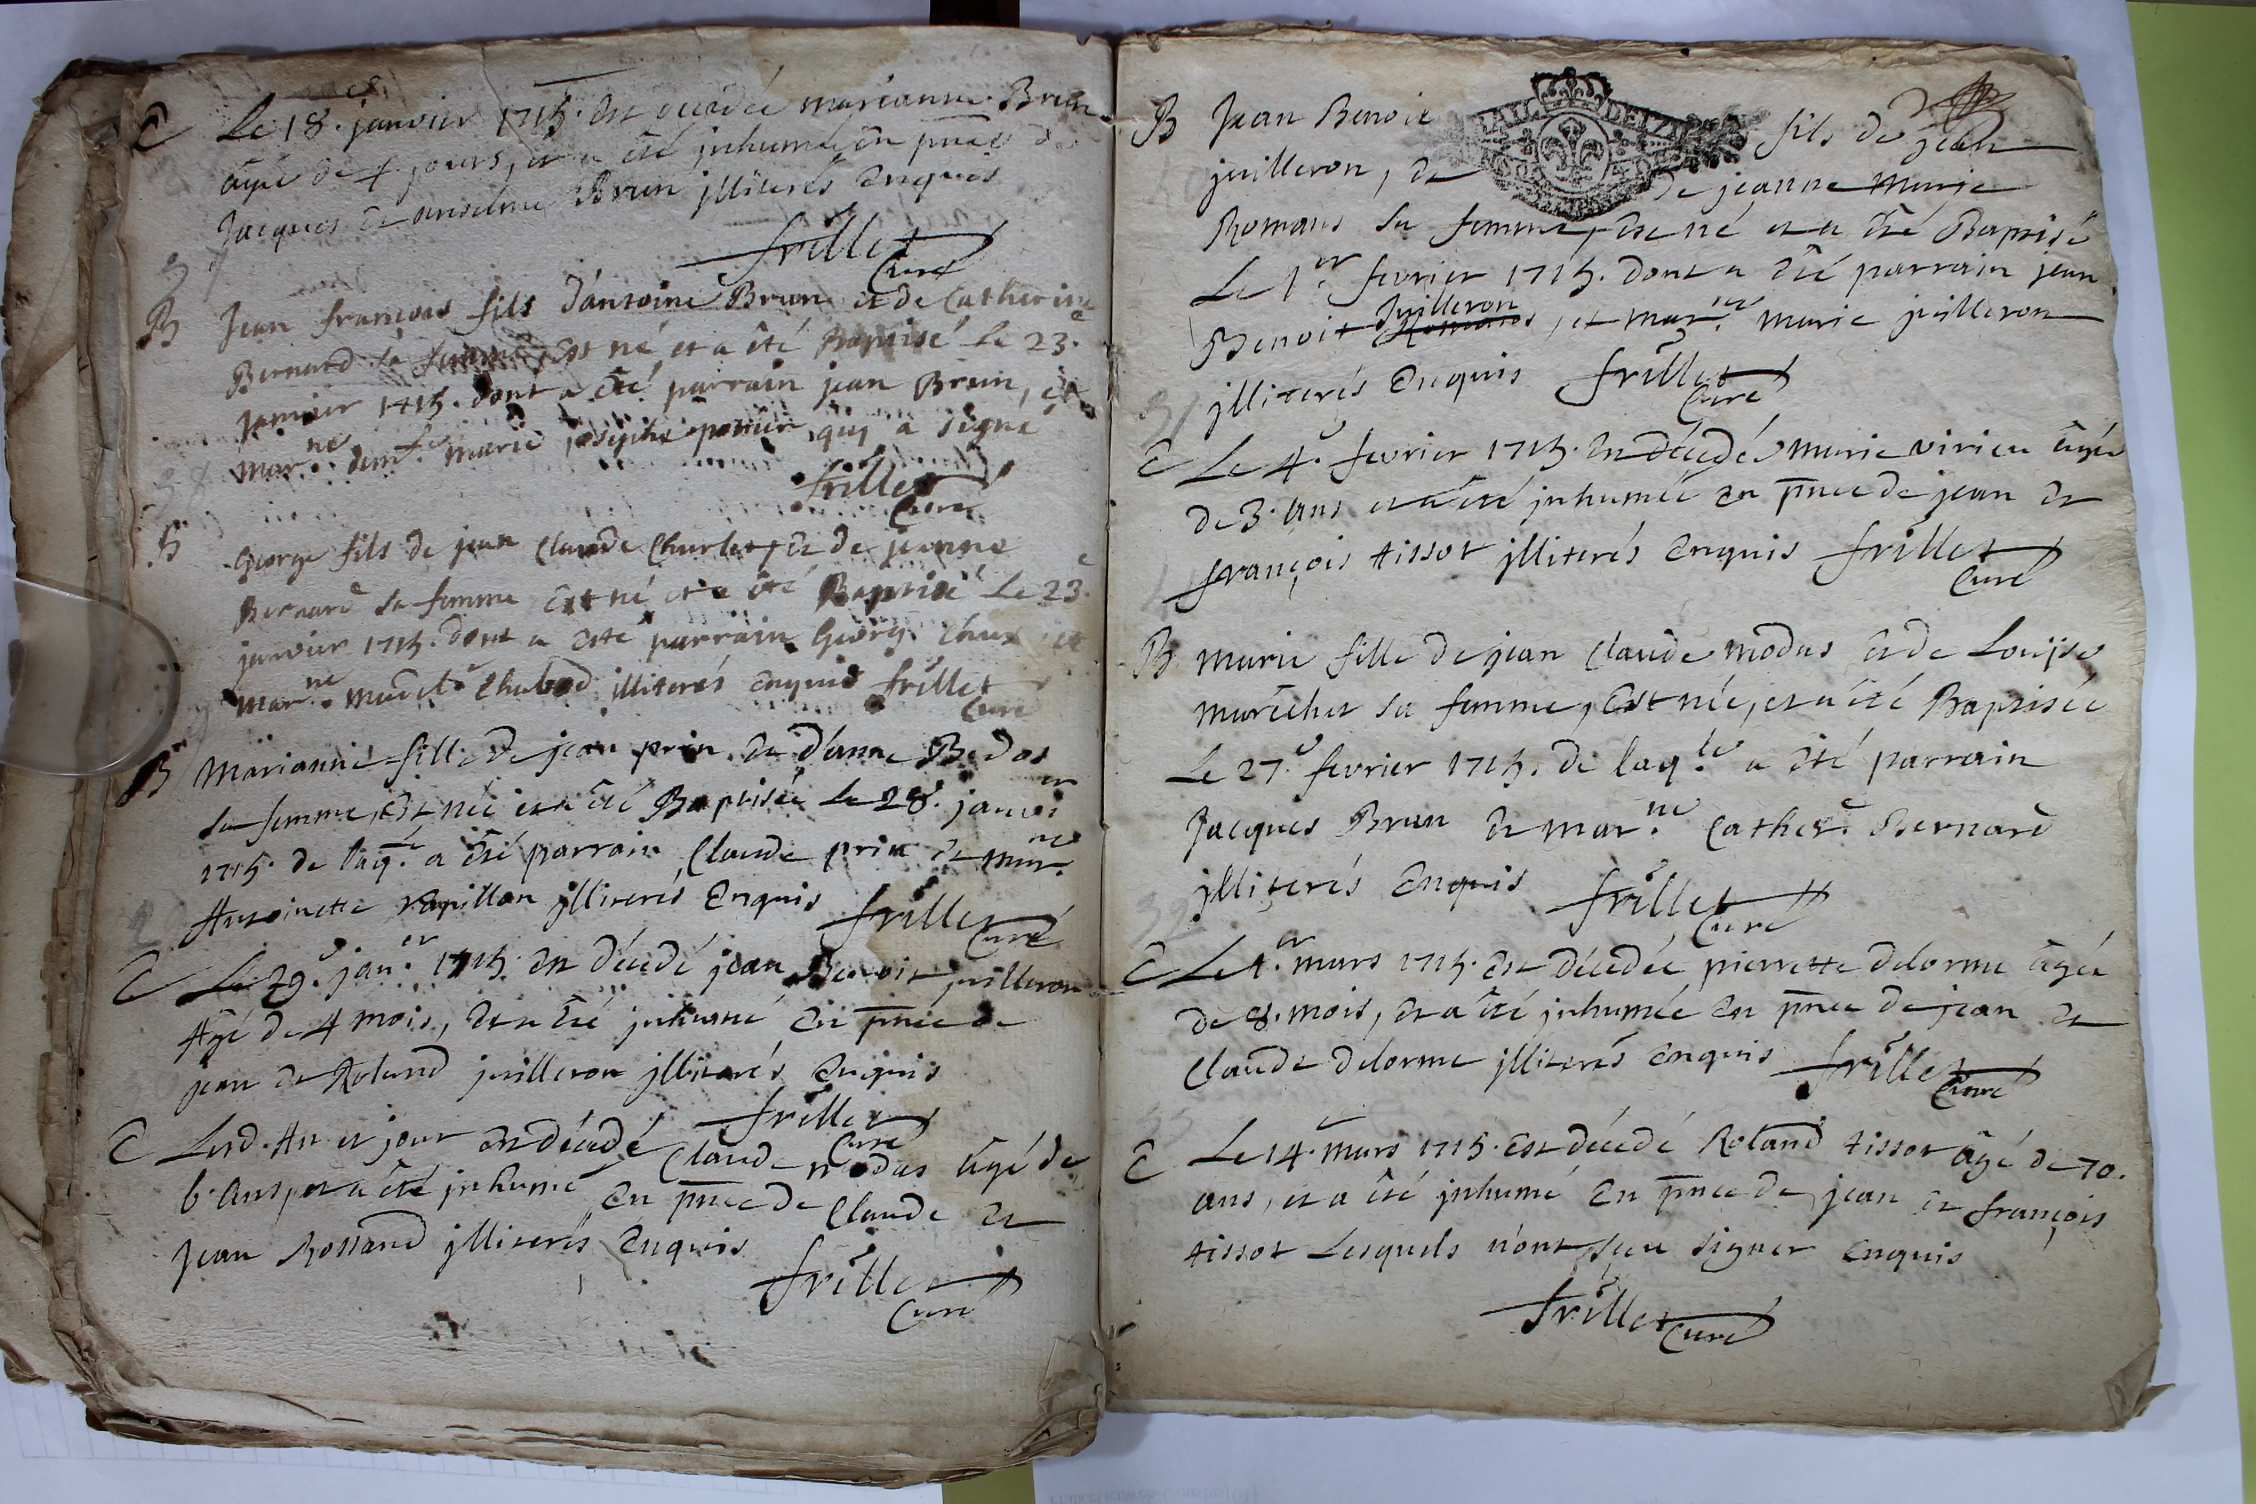 C Le 18.e janvier 1715. est décédée marianne Brun
âgée de 4. jours, et a été inhumée en pnce de
Jacques et anselme Brun illiterés Enquis
frillet
Curé
B Jean françois fils d'antoine Brun et de Catherine
Bernard sa femme, Est né et a été Baptisé Le 23.e
Janvier 1715. dont a été parrain jean Brun, et
mar.ne dem.le marie josephe qui a signé
frillet
Curé
B George fils de jean Claude Churlet, et de jeanne
Bernard sa femme Est né et a été Baptisé Le 23.e
janvier 1715. dont a esté parrain Georg. et
mar.ne illiterés enquis frillet
Curé
B Marianne fille de jean prin et d'anne Bedos
sa femme, Est née et a été Baptisée Le 28.e janvier
1715. de laq.e a été parrain Claude prin et mar.ne
Antoinette papillon illiterés Enquis frillet
Curé
C Le 29.e jan.er 1715. est décedé jean Benoit juilleron
Agé de 4 mois, et a été inhumé En pnce de
jean et Roland juilleron illiterés Enquis
frillet
Curé
C Lesd. An et jour est décédé Claude modas âgé de
6. ans, et a été inhumé En pnce de Claude et
Jean Rostand illiterés Enquis
frillet
Curé
B Jean Benoit fils de jean
juilleron, et de jeanne Marie
Romans sa femme, Est né et a été Baptisé
Le 1.er fevrier 1715. dont a été parrain jean
Juilleron
Benoit Romans, et mar.ne marie juilleron
illiterés Enquis frillet
Curé
C Le 4.e fevrier 1715. est décédée marie virieu âgée
de 3. ans et a été inhumée en pnce de jean et
françois tissot illiterés Enquis frillet
Curé
B Marie fille de jean Claude modas et de Louise
maréchet sa femme, Est née, et a été Baptisée
Le 27.e fevrier 1715. de laq.le a été parrain
Jacques Brun et mar.ne Cather.e Bernard
illiterés Enquis frillet
Curé
C Le 1.er mars 1715. est décedée pierrette delorme âgée
de 8. mois, et a été inhumée en pnce de jean et
Claude delorme illiterés Enquis frillet
Curé
C Le 14.e mars 1715. est décedé Roland tissot âgé de 70.
ans, et a été inhumé en pnce de jean et françois
tissot Lesquels n'ont sçeu signer Enquis
frillet Curé